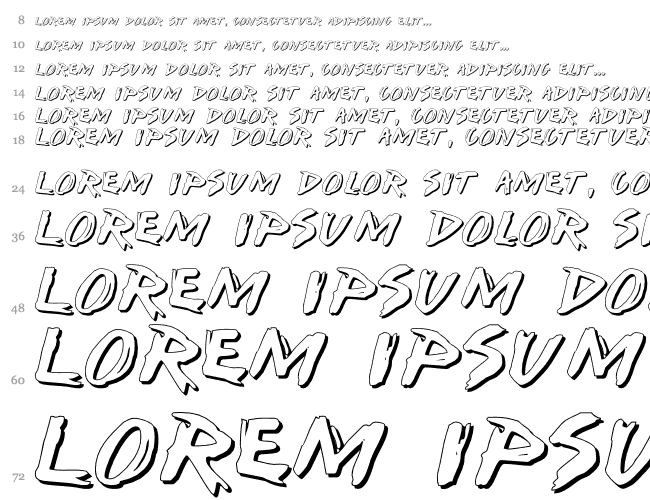 8 LOREM IPSUM DOLOR SIT AMET, CONSECTETUER ADIPISCING ELIT...
10 LOREM IPSUM DOLOR SIT AMET, CONSECTETUER ADIPISCING ELIT...
12 LOREM IPSUM DOLOR SIT AMET, CONSECTETUER ADIPISCING ELIT...
14 LOREM IPSUM DOLOR SIT AMET, CONSECTETUER ADIPISCING
16 LOREM IPSUM DOLOR SIT AMET, CONSECTETUER ADIPI
18 LOREM IPSUM DOLOR SIT AMET, CONSECTETUER
24 LOREM IPSUM DOLOR SIT AMET, CO
36 LOREM IPSUM DOLOR SI
48 LOREM IPSUM DO
60 LOREM IPSUM
72 LOREM IPSU